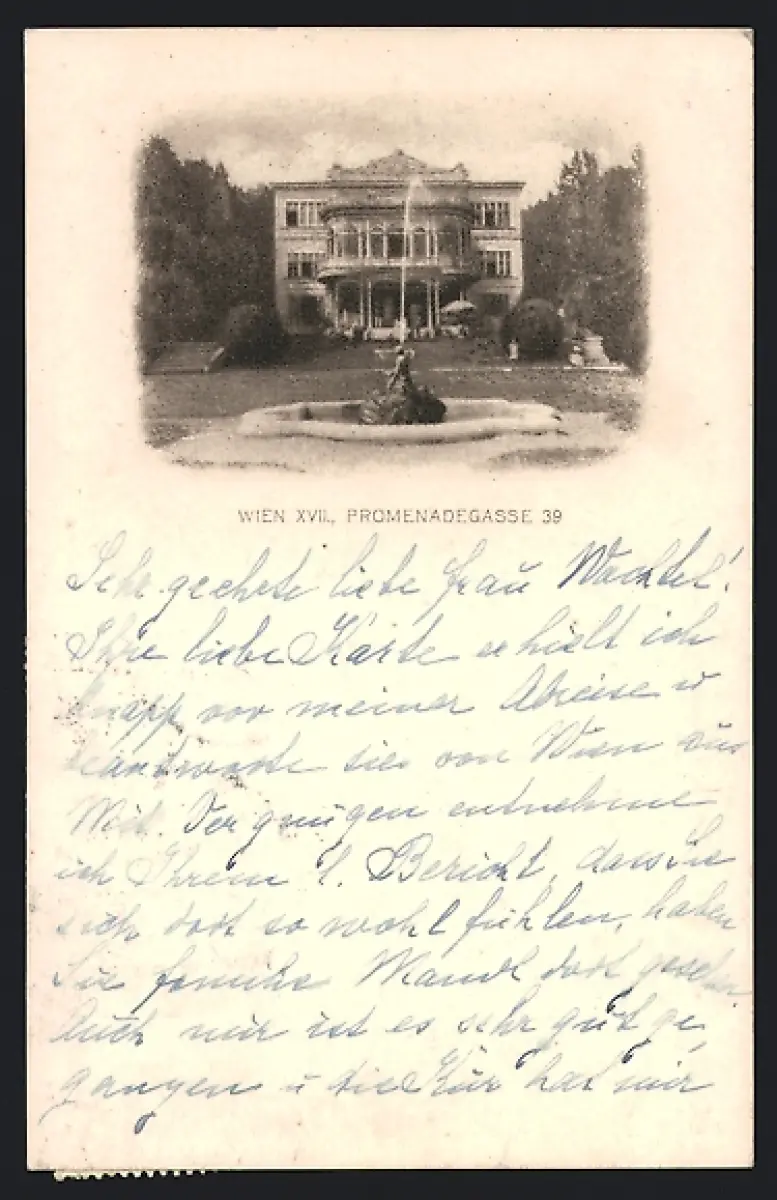 WIEN XVII., PROMENADEGASSE 39
Sehr geehrte liebe Frau Wachtel!
Ihre liebe Karte erhielt ich
knapp vor meiner Abreise u
beantworte sie von Wien aus
Mit Vergnügen entnehme
ich Ihrem l. Bericht, dass Sie
sich dort so wohl fühlen, haben
Sie Familie Mandl dort gesehen
Auch mir ist es sehr gut ge
gangen u die Kur hat mir